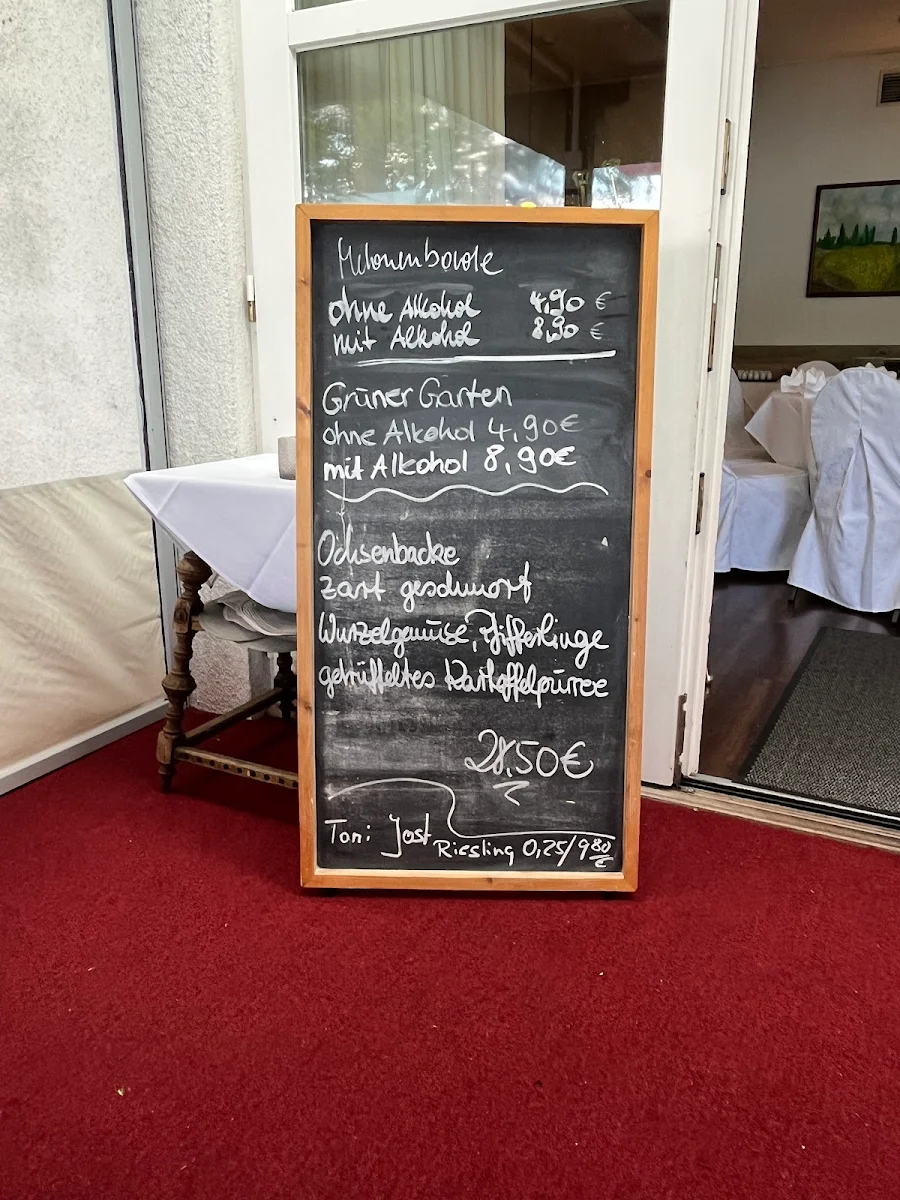 Melonenbowle
ohne Alkohol 4,90 €
mit Alkohol 8,90 €
Grüner Garten
ohne Alkohol 4,90€
mit Alkohol 8,90€
Ochsenbacke
zart geschmort
Wurzelgemüse, Pfifferlinge
getrüffeltes Kartoffelpürree
28,50€
Toni Jost
Riesling 0,25/9 80 €